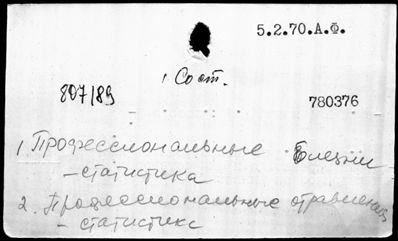 5.2.70.А.Ф.
1 Сост.
807/89
780376
1 Профессиональные болезни
– статистика
2. Профессиональные отравления
– статистика